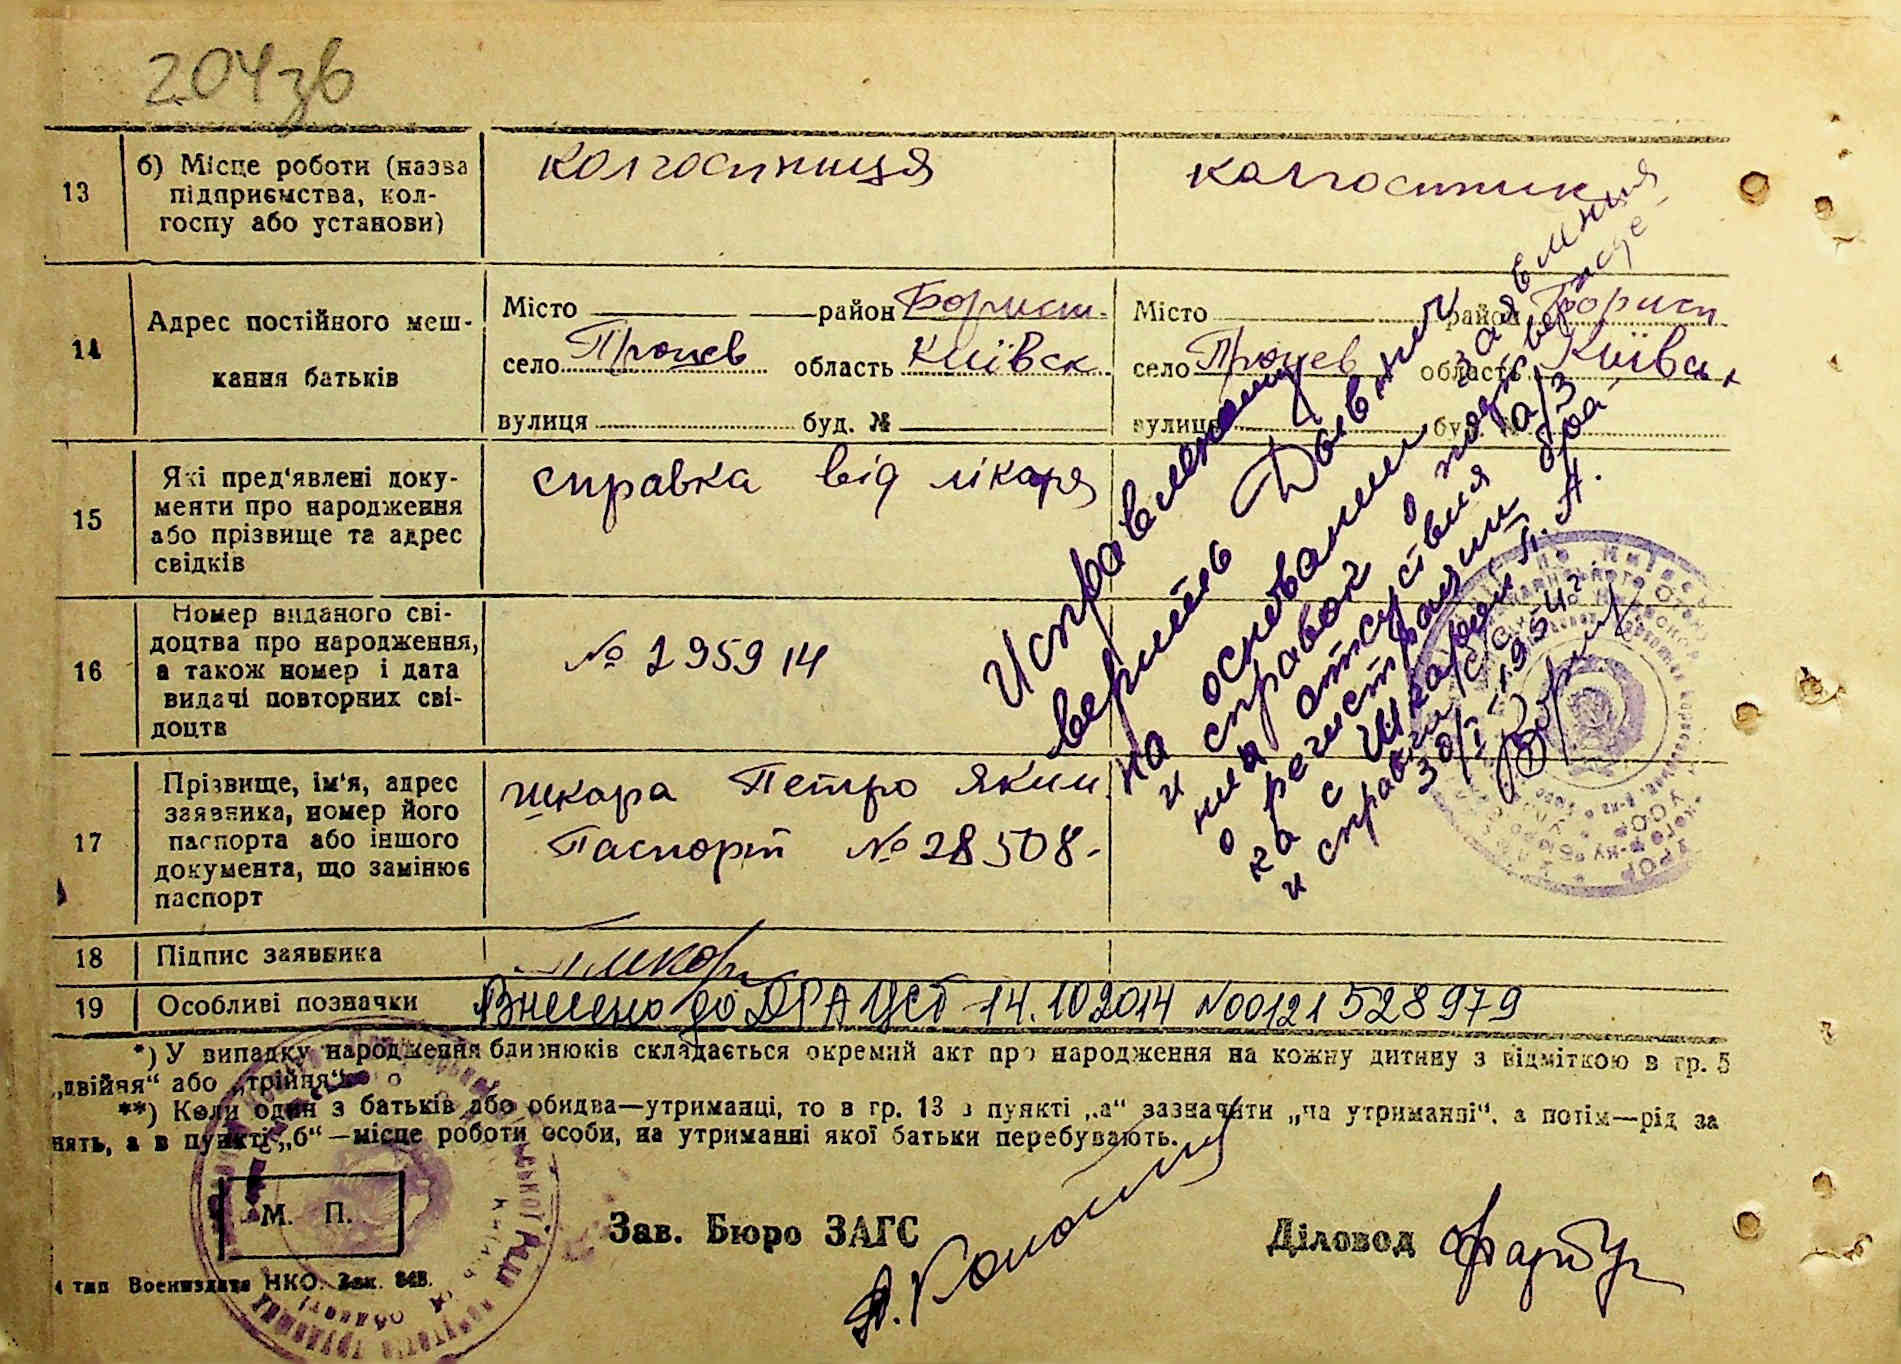 204зв
13
б) Місце роботи (назва
підприємства, кол-
госпу або установи)
колгоспниця
колгоспник
14
Адрес постійного меш-
кання батьків
Місто район Борисп.
село Процев область Київск
вулиця буд. №
Місто район Борисп
село Процев область Київськ
вулиця буд. №
15
Які пред'явлені доку-
менти про народження
або прізвище та адрес
свідків
справка від лікаря
16
Номер виданого сві-
доцтва про народження,
а також номер і дата
видачі повторних сві-
доцтв
№ 295914
17
Прізвище, ім'я, адрес
заявника, номер його
паспорта або іншого
документа, що замінює
паспорт
Шкара Петро Яким.
Паспорт № 28508.
Исправленному
верить
на основании заявления
и справок о подтвержде-
нии отсутствия а/з
о регистрации бра-
ка с
и справки
18
Підпис заявника
19
Особливі позначки
Внесено до ДРАЦСГ 14.10.2014 №00121528979
*) У випадку народження близнюків складається окремий акт про народження на кожну дитину з відміткою в гр. 5
„двійня“ або „трійня“.
**) Коли один з батьків або обидва—утриманці, то в гр. 13 в пункті „а“ зазначити „на утриманні“, а потім—рід за
нять, а в пункті „б“—місце роботи особи, на утриманні якої батьки перебувають.
М. П.
Зав. Бюро ЗАГС
Діловод
4 тип Воениздата НКО. Зак. 848.